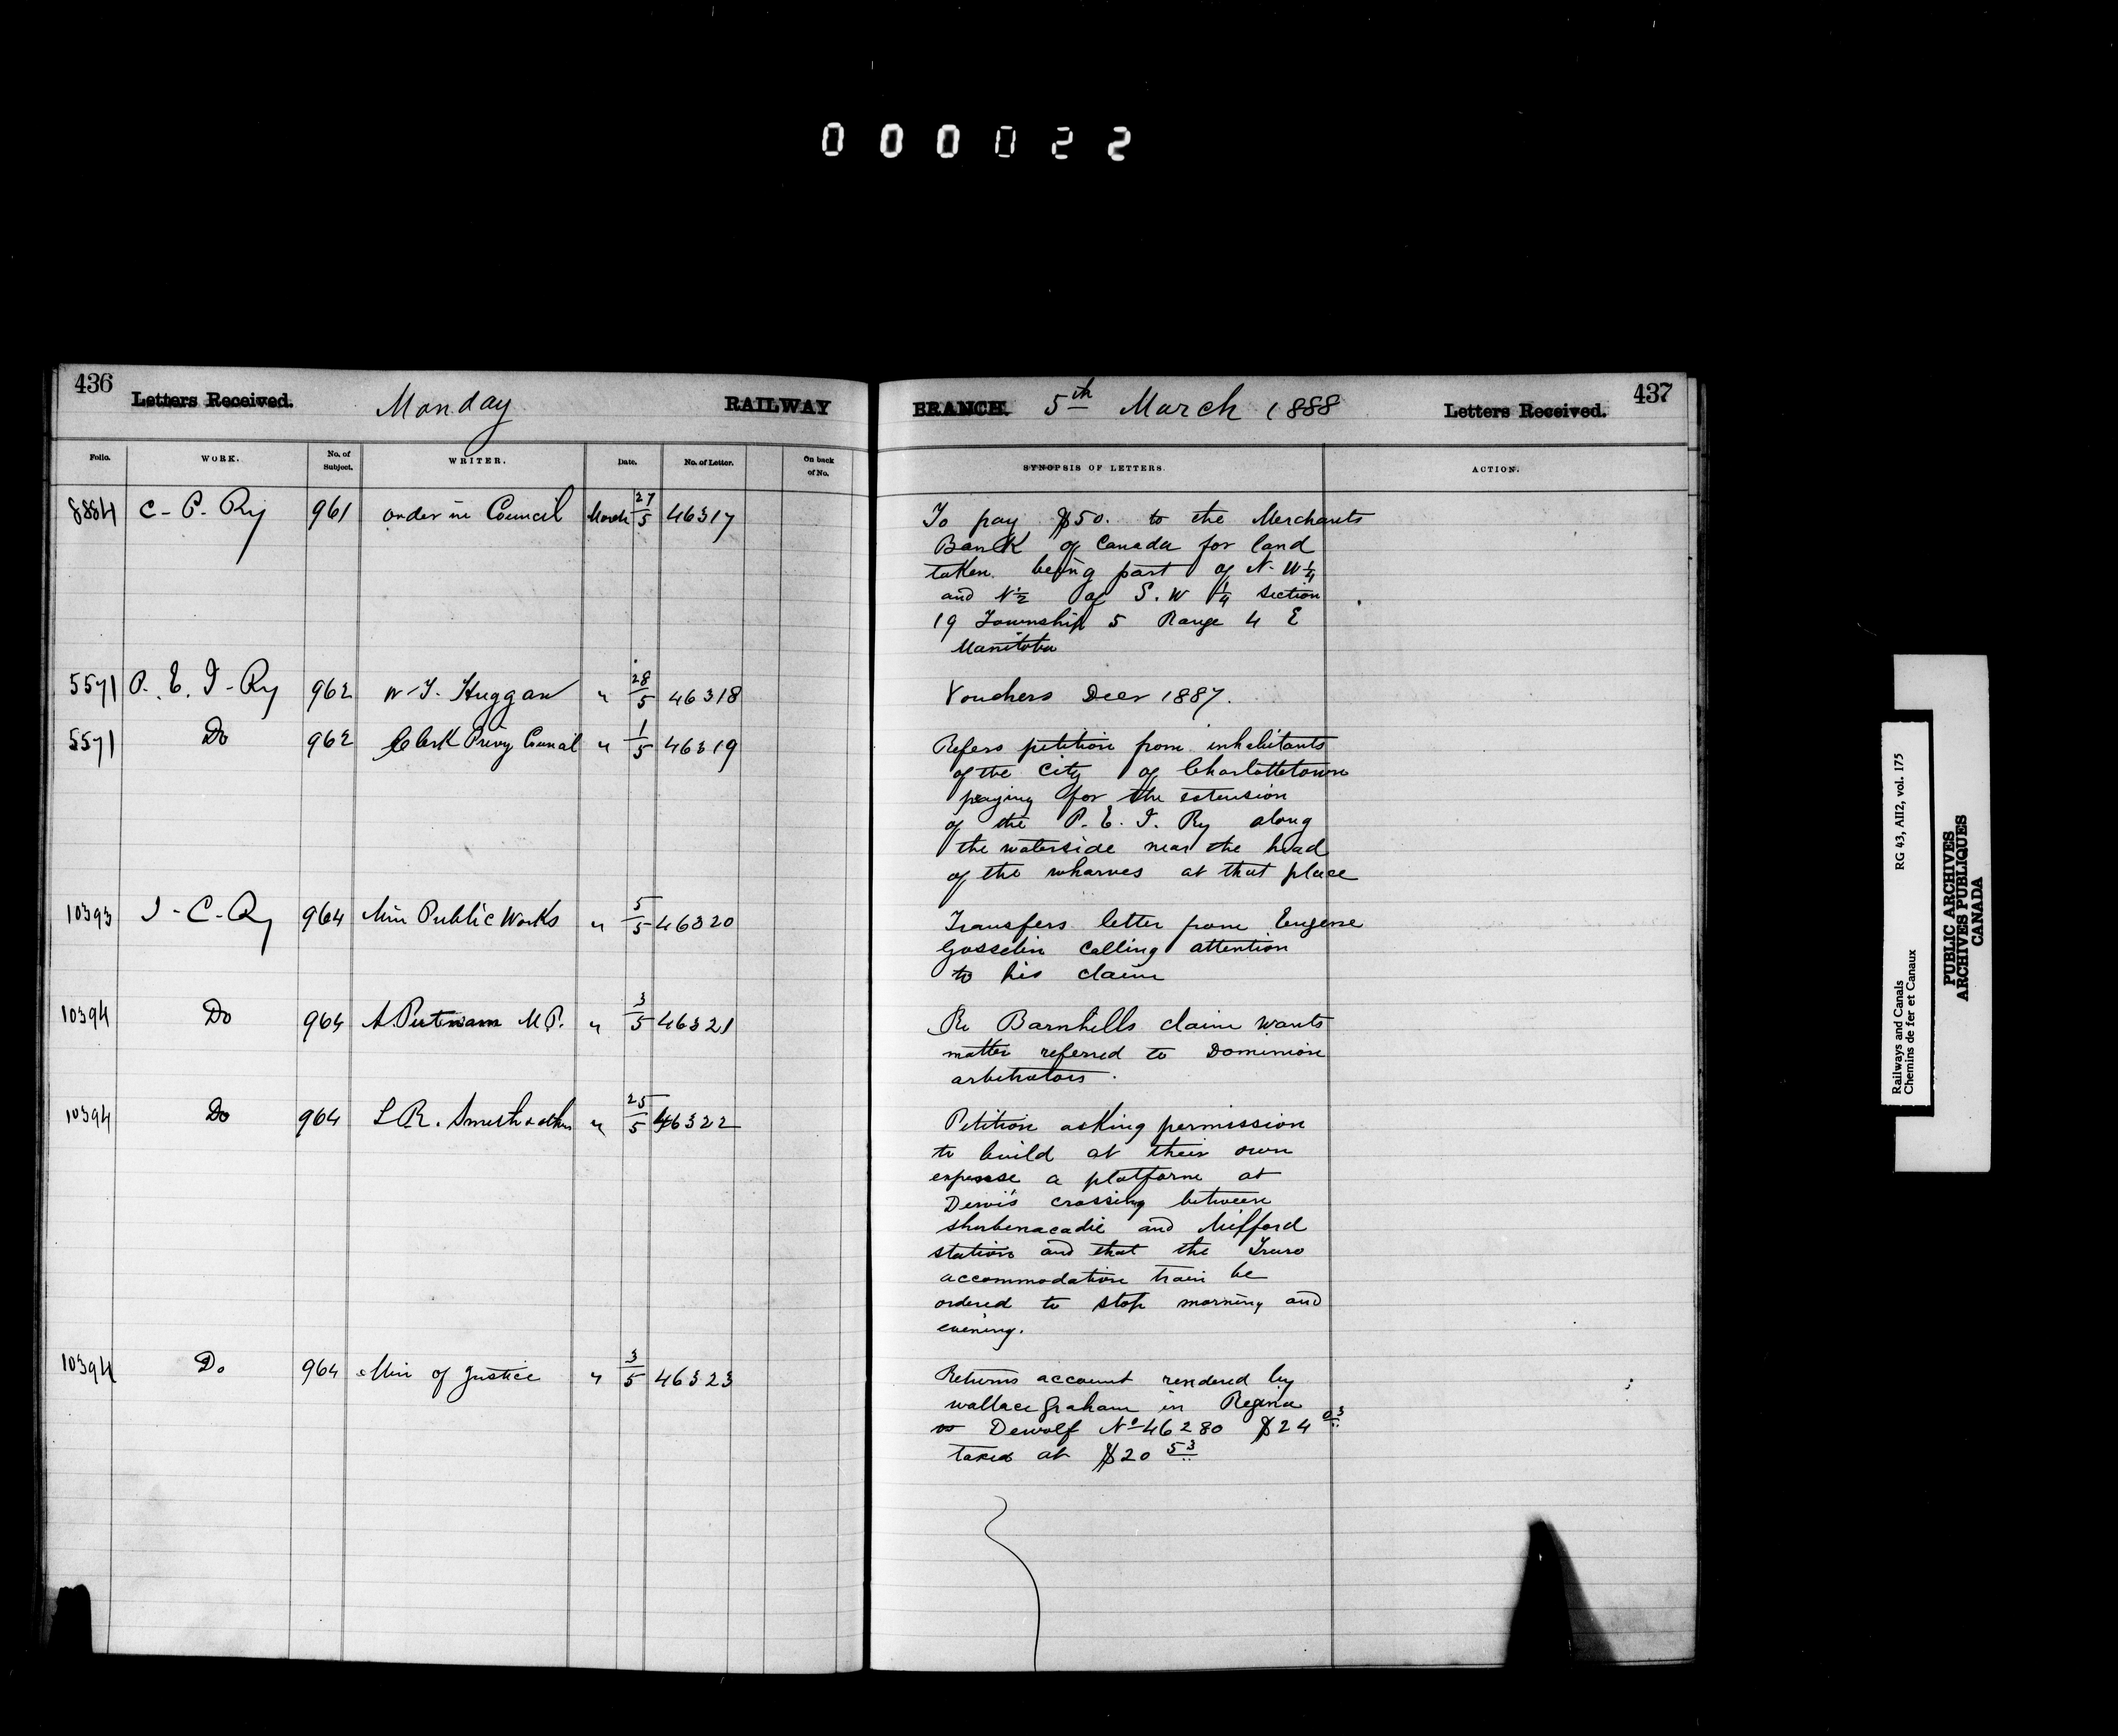 000022
436 Letters Received. Monday RAILWAY
BRANCH. 5th March 1888 Letters Received. 437
Folio. WORK. No. of Subject. WRITER. Date. No. of Letter. On back of No.
SYNOPSIS OF LETTERS. ACTION.
8884 C-P-Ry 961 order in Council March 27/5 46317
To pay $50. to the Merchants
Bank of Canada for land
taken being part of N-W 1/4
and N 1/2 of S.W 1/4 section
19 Township 5 Range 4 E
Manitoba
5571 P.E.I-Ry 962 W-T. Huggan " 28/5 46318
Vouchers Decr 1887.
5571 Do 962 Clerk Privy Council " 1/5 46319
Refers petition from inhabitants
of the City of Charlottetown
praying for the extension
of the P.E.I. Ry along
the waterside near the head
of the wharves at that place
10393 I-C-Ry 964 Min Public Works " 5/5 46320
Transfers letter from Eugene
Gosselin calling attention
to his claim
10394 Do 964 A. Putnam M.P. " 3/5 46321
Re Barnhills claim wants
matter referred to Dominion
arbitrators.
10394 Do 964 L.R. Smith & others " 25/5 46322
Petition asking permission
to build at their own
expense a platform at
crossing between
Shubenacadie and Milford
station and that the Truro
accommodation train be
ordered to stop morning and
evening.
10394 Do 964 Min of Justice " 3/5 46323
Returns account rendered by
Wallace Graham in Regina
vs Dewolf No 46280 $24 03
taxed at $20 53
Railways and Canals RG 43, AII2, vol. 175
Chemins de fer et Canaux
PUBLIC ARCHIVES
ARCHIVES PUBLIQUES
CANADA